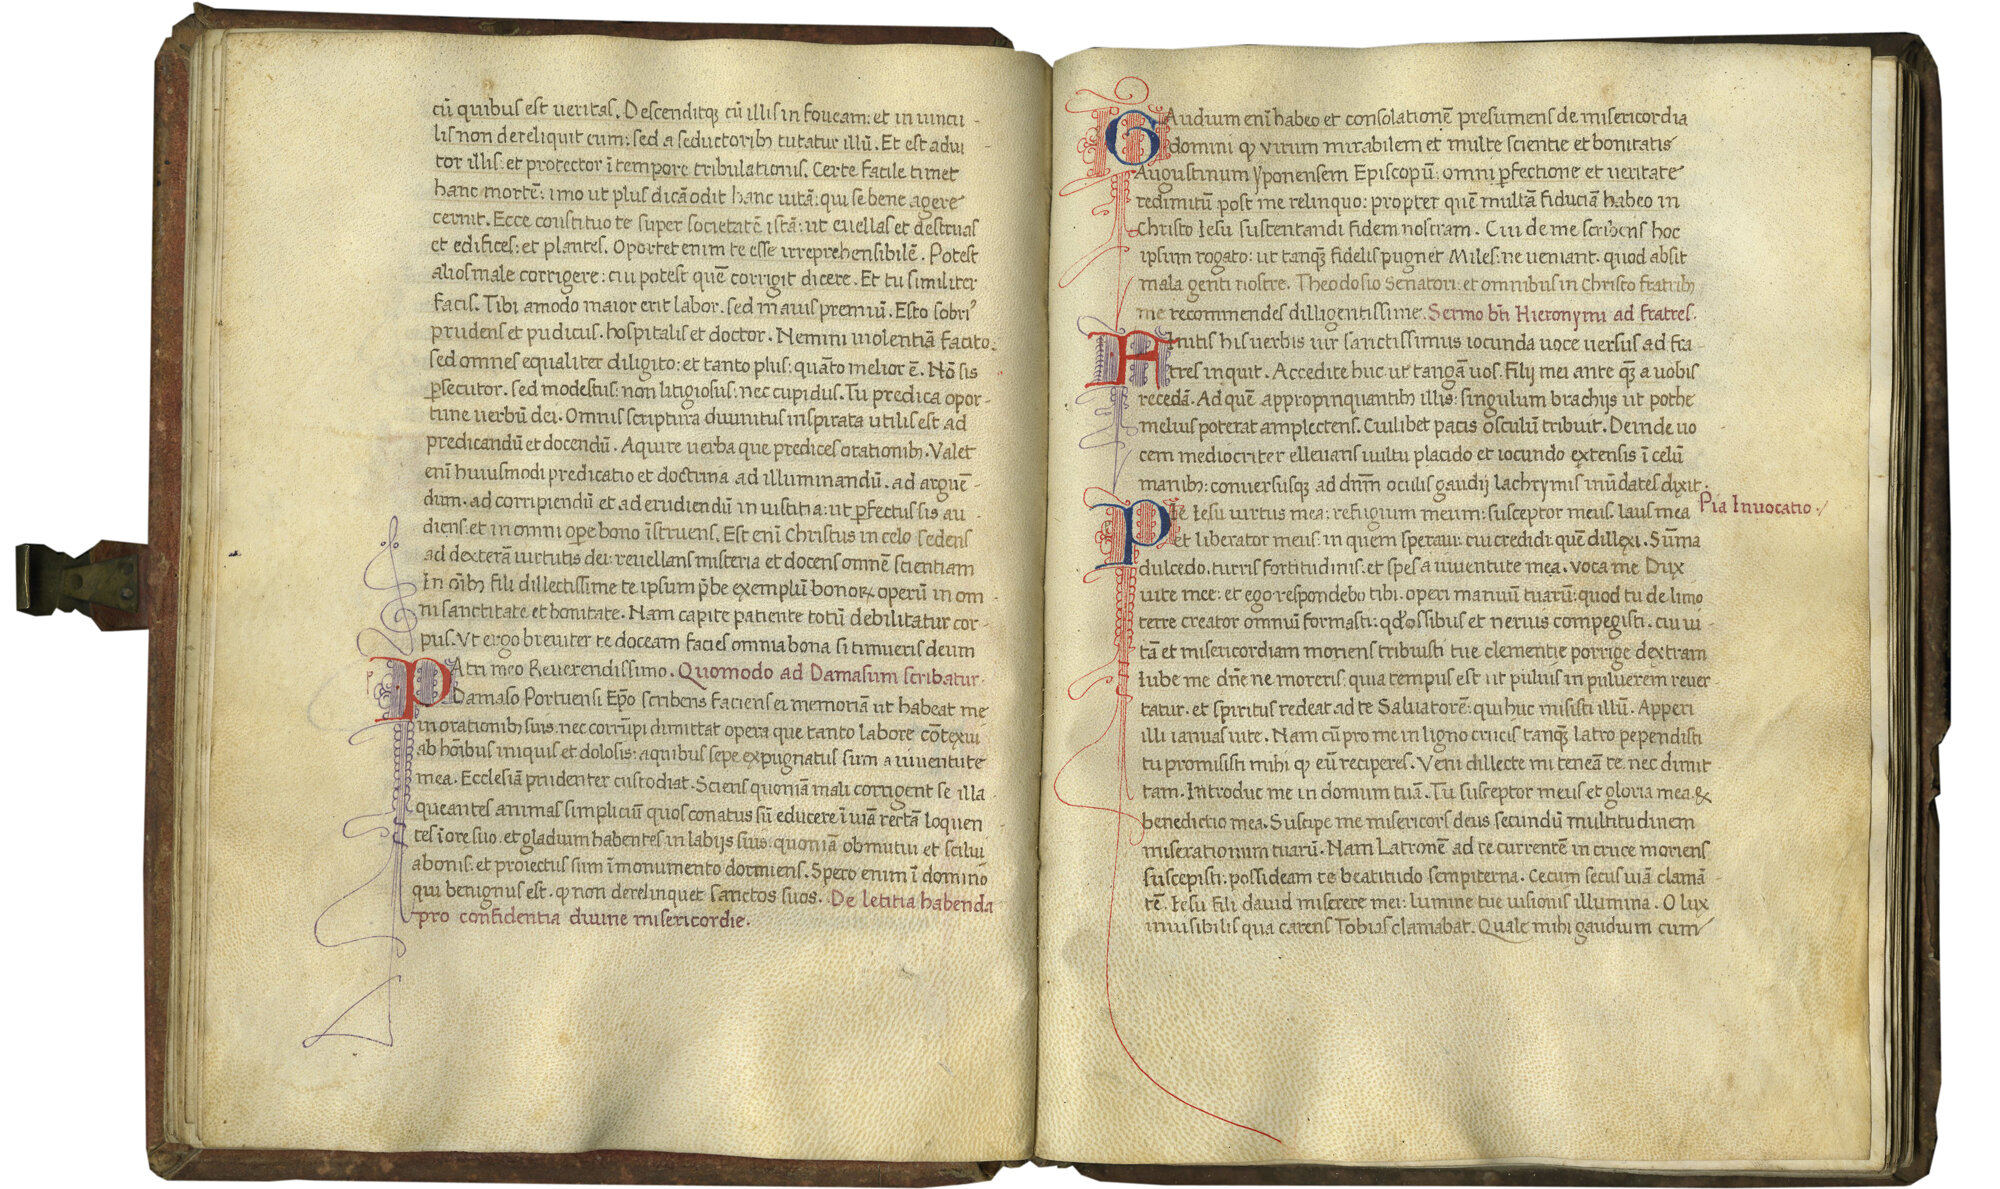 cū quibus est ueritas. Descenditqꝫ cū illis in foueam: et in uincu-
lis non dereliquit eum: sed a seductoribꝫ tutatur illū. Et est adiu-
tor illis: et protector ī tempore tribulationis. Certe facile timet
hanc mortē: imo ut plus dicā odit hanc uitā: qui se bene agere
cernit. Ecce constituo te super societatē istā: ut euellas et destruas
et edifices: et plantes. Oportet enim te esse irreprehensibilē. Potest
alios male corrigere: cui potest quē corrigit dicere. Et tu similiter
facis. Tibi amodo maior erit labor. sed mauis premiū. Esto sobri'
prudens et pudicus. hospitalis et doctor. Nemini uiolentiā facito.
sed omnes equaliter diligito: et tanto plus: quāto melior ē. Nō sis
ꝑsecutor. sed modestus: non litigiosus: nec cupidus. Tu predica opor-
tune uerbū dei. Omnis scriptura diuinitus inspirata utilis est ad
predicandū et docendū. Aquire uerba que predices orationibꝫ. Valet
enī huiusmodi predicatio et doctrina ad illuminandū. ad arguē-
dum. ad corripiendū et ad erudiendū in iustitia: ut ꝑfectus sis au-
diens. et in omni oꝑe bono īstruens. Est enī Christus in celo sedens
ad dexterā uirtutis dei: reuellans misteria et docens omnē scientiam
In oībꝫ fili dillectissime te ipsum p̄be exemplū bonoꝝ operū in om-
ni sanctitate et bonitate. Nam capite patiente totū debilitatur cor-
pus. Vt ergo breuiter te doceam facies omnia bona si timueris deum
PAtri meo Reuerendissimo. Quomodo ad Damasum scribatur.
Damaso Portuensi Ep̄o scribens faciens ei memoriā ut habeat me
in orationibꝫ suis. nec corrūpi dimittat opera que tanto labore cōtexui
ab hōibus iniquis et dolosis: a quibus sepe expugnatus sum a iuuentute
mea. Ecclesiā prudenter custodiat. Sciens quoniā mali corrigent se illa
queantes animas simpliciū quos conatus sū educere ī uiā rectā loquen
tes ī ore suo. et gladium habentes in labijs suis: quoniā obmutui et scilui
a bonis: et proiectus sum ī monumento dormiens. Spero enim ī domino
qui benignus est. ꝙ non derelinquet sanctos suos. De letitia habenda
pro confidentia diuine misericordie.
GAudium enī habeo et consolationē presumens de misericordia
domini ꝙ virum mirabilem et multe scientie et bonitatis
Augustinum yponensem Episcopū: omni ꝑfectione et ueritate
redimitū post me relinquo: propter quē multā fiduciam habeo in
Christo Iesu sustentandi fidem nostram. Cui de me scribens hoc
ipsum rogato: ut tanqꝫ fidelis pugnet Miles: ne ueniant. quod absit
mala genti nostre. Theodosio Senatori: et omnibus in Christo fratribꝫ
me recommendes dilligentissime. Sermo bti Hieronymi ad fratres.
FInitis his uerbis uir sanctissimus iocunda uoce uersus ad fra-
tres inquit. Accedite huc ut tangā uos. Filij mei ante qꝫ a uobis
recedā. Ad quē appropinquantibꝫ illis: singulum brachijs ut pothe
melius poterat amplectens. Cuilibet pacis osculū tribuit. Deinde uo
cem mediocriter elleuans uultu placido et iocundo extensis ī celū
manibꝫ: conuersusqꝫ ad dnm oculis gaudij lachrymis inūdates dixit.
PIe Iesu uirtus mea: refugium meum: susceptor meus. laus mea
Pia Inuocatio
et liberator meus: in quem speraui: cui credidi: quē dillexi. Sūma
dulcedo. turris fortitudinis. et spes a iuuentute mea. voca me Dux
uite mee: et ego respondebo tibi. operi manuū tuarū: quod tu de limo
terre creator omniū formasti: qd ossibus et neruis compegisti. cui ui-
tā et misericordiam moriens tribuisti tue clementie porrige dextram
Iube me dnē ne moreris. quia tempus est ut puluis in puluerem reuer-
tatur. et spiritus redeat ad te Saluatorē: qui huc misisti illū. Apperi
illi ianuas uite. Nam cū pro me in ligno crucis tanqꝫ latro pependisti
tu promisisti mihi ꝙ eū reciperes. Veni dillecte mi teneā te. nec dimit-
tam. Introduc me in domum tuā. Tu susceptor meus et gloria mea. &
benedictio mea. Suscipe me misericors deus secundū multitudinem
miserationum tuarū. Nam Latronē ad te currentē in cruce moriens
suscepisti: possideam te beatitudo sempiterna. Cecum secus uiā clamā-
tē. Iesu fili dauid miserere mei: lumine tue uisionis illumina. O lux
inuisibilis qua carens Tobias clamabat. Quale mihi gaudium cum